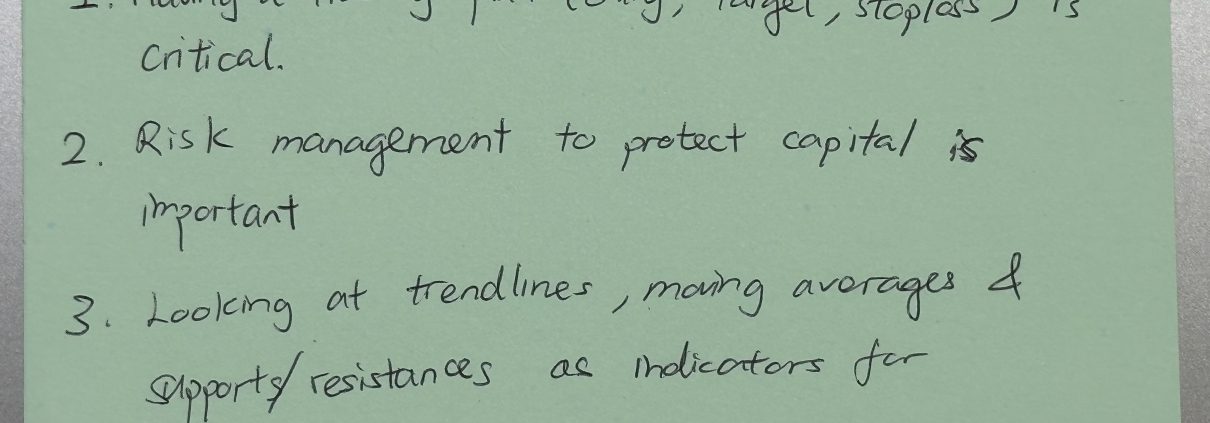 1. target, stoploss) is
critical.
2. Risk management to protect capital is
important
3. Looking at trendlines, moving averages &
supports/resistances as indicators for